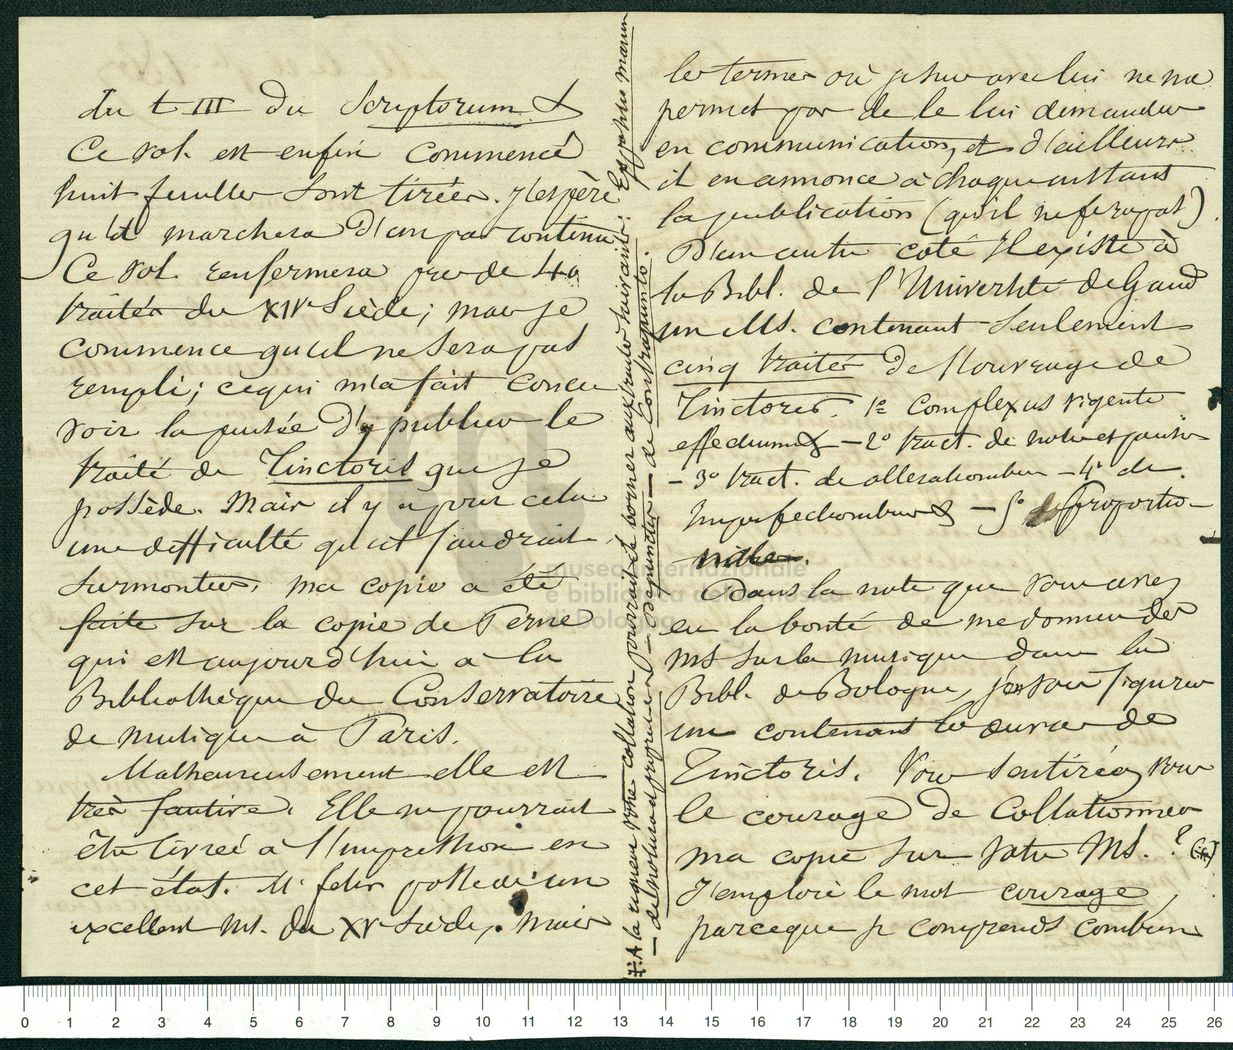 du t III du Scriptorum &
Ce vol. est enfin commencé
huit feuilles sont tirées. J'espère
qu'il marchera d'un pas continu
Ce vol. renfermera près de 40
traités du XIVe siècle; mais je
commence qu'il ne sera pas
rempli; ce qui m'a fait conce
voir la pensée d'y publier le
traité de Tinctoris que je
possède. Mais il y a pour cela
une difficulté qu'il faudrait
surmonter. ma copie a été
faite sur la copie de Perne
qui est aujourd'hui à la
Bibliothèque du Conservatoire
de musique à Paris.
Malheureusement elle est
très fautive. Elle ne pourrait
être livrée à l'impression en
cet état. M. fétis possède un
excellent Ms. du XVe siècle. Mais
les termes où je suis avec lui ne me
permet pas de le lui demander
en communication, et d'ailleurs
il en annonce à chaque instant
la publication (qu'il ne fera pas).
D'un autre coté Il existe à
la Bibl. de l'Université de Gand
un Ms. contenant seulement
cinq traités de l'ouvrage de
Tinctoris. 1º Complexus viginti
effectuum & – 2º tract. de notis et pausis
– 3º tract. de alterationibus – 4º de
Imperfectionibus & – 5º de Proportio–
nibus.
Dans la note que vous avez
eu la bonté de me donner des
ms sur la musique dans la
Bibl. de Bologne, j'en vois figurer
un contenant les œuvres de
Tinctoris. Vous sentirez vous
le courage de Collationner
ma copie sur votre Ms.? (*)
J'emploie le mot courage
parceque je comprends combien
*. A la rigueur votre collation pourrait se borner aux traités suivants: Expositio manus
– de natura et proprietate – de punctis – de Contrapuncto.
museo internazionale
e biblioteca della musica
di Bologna
0 1 2 3 4 5 6 7 8 9 10 11 12 13 14 15 16 17 18 19 20 21 22 23 24 25 26